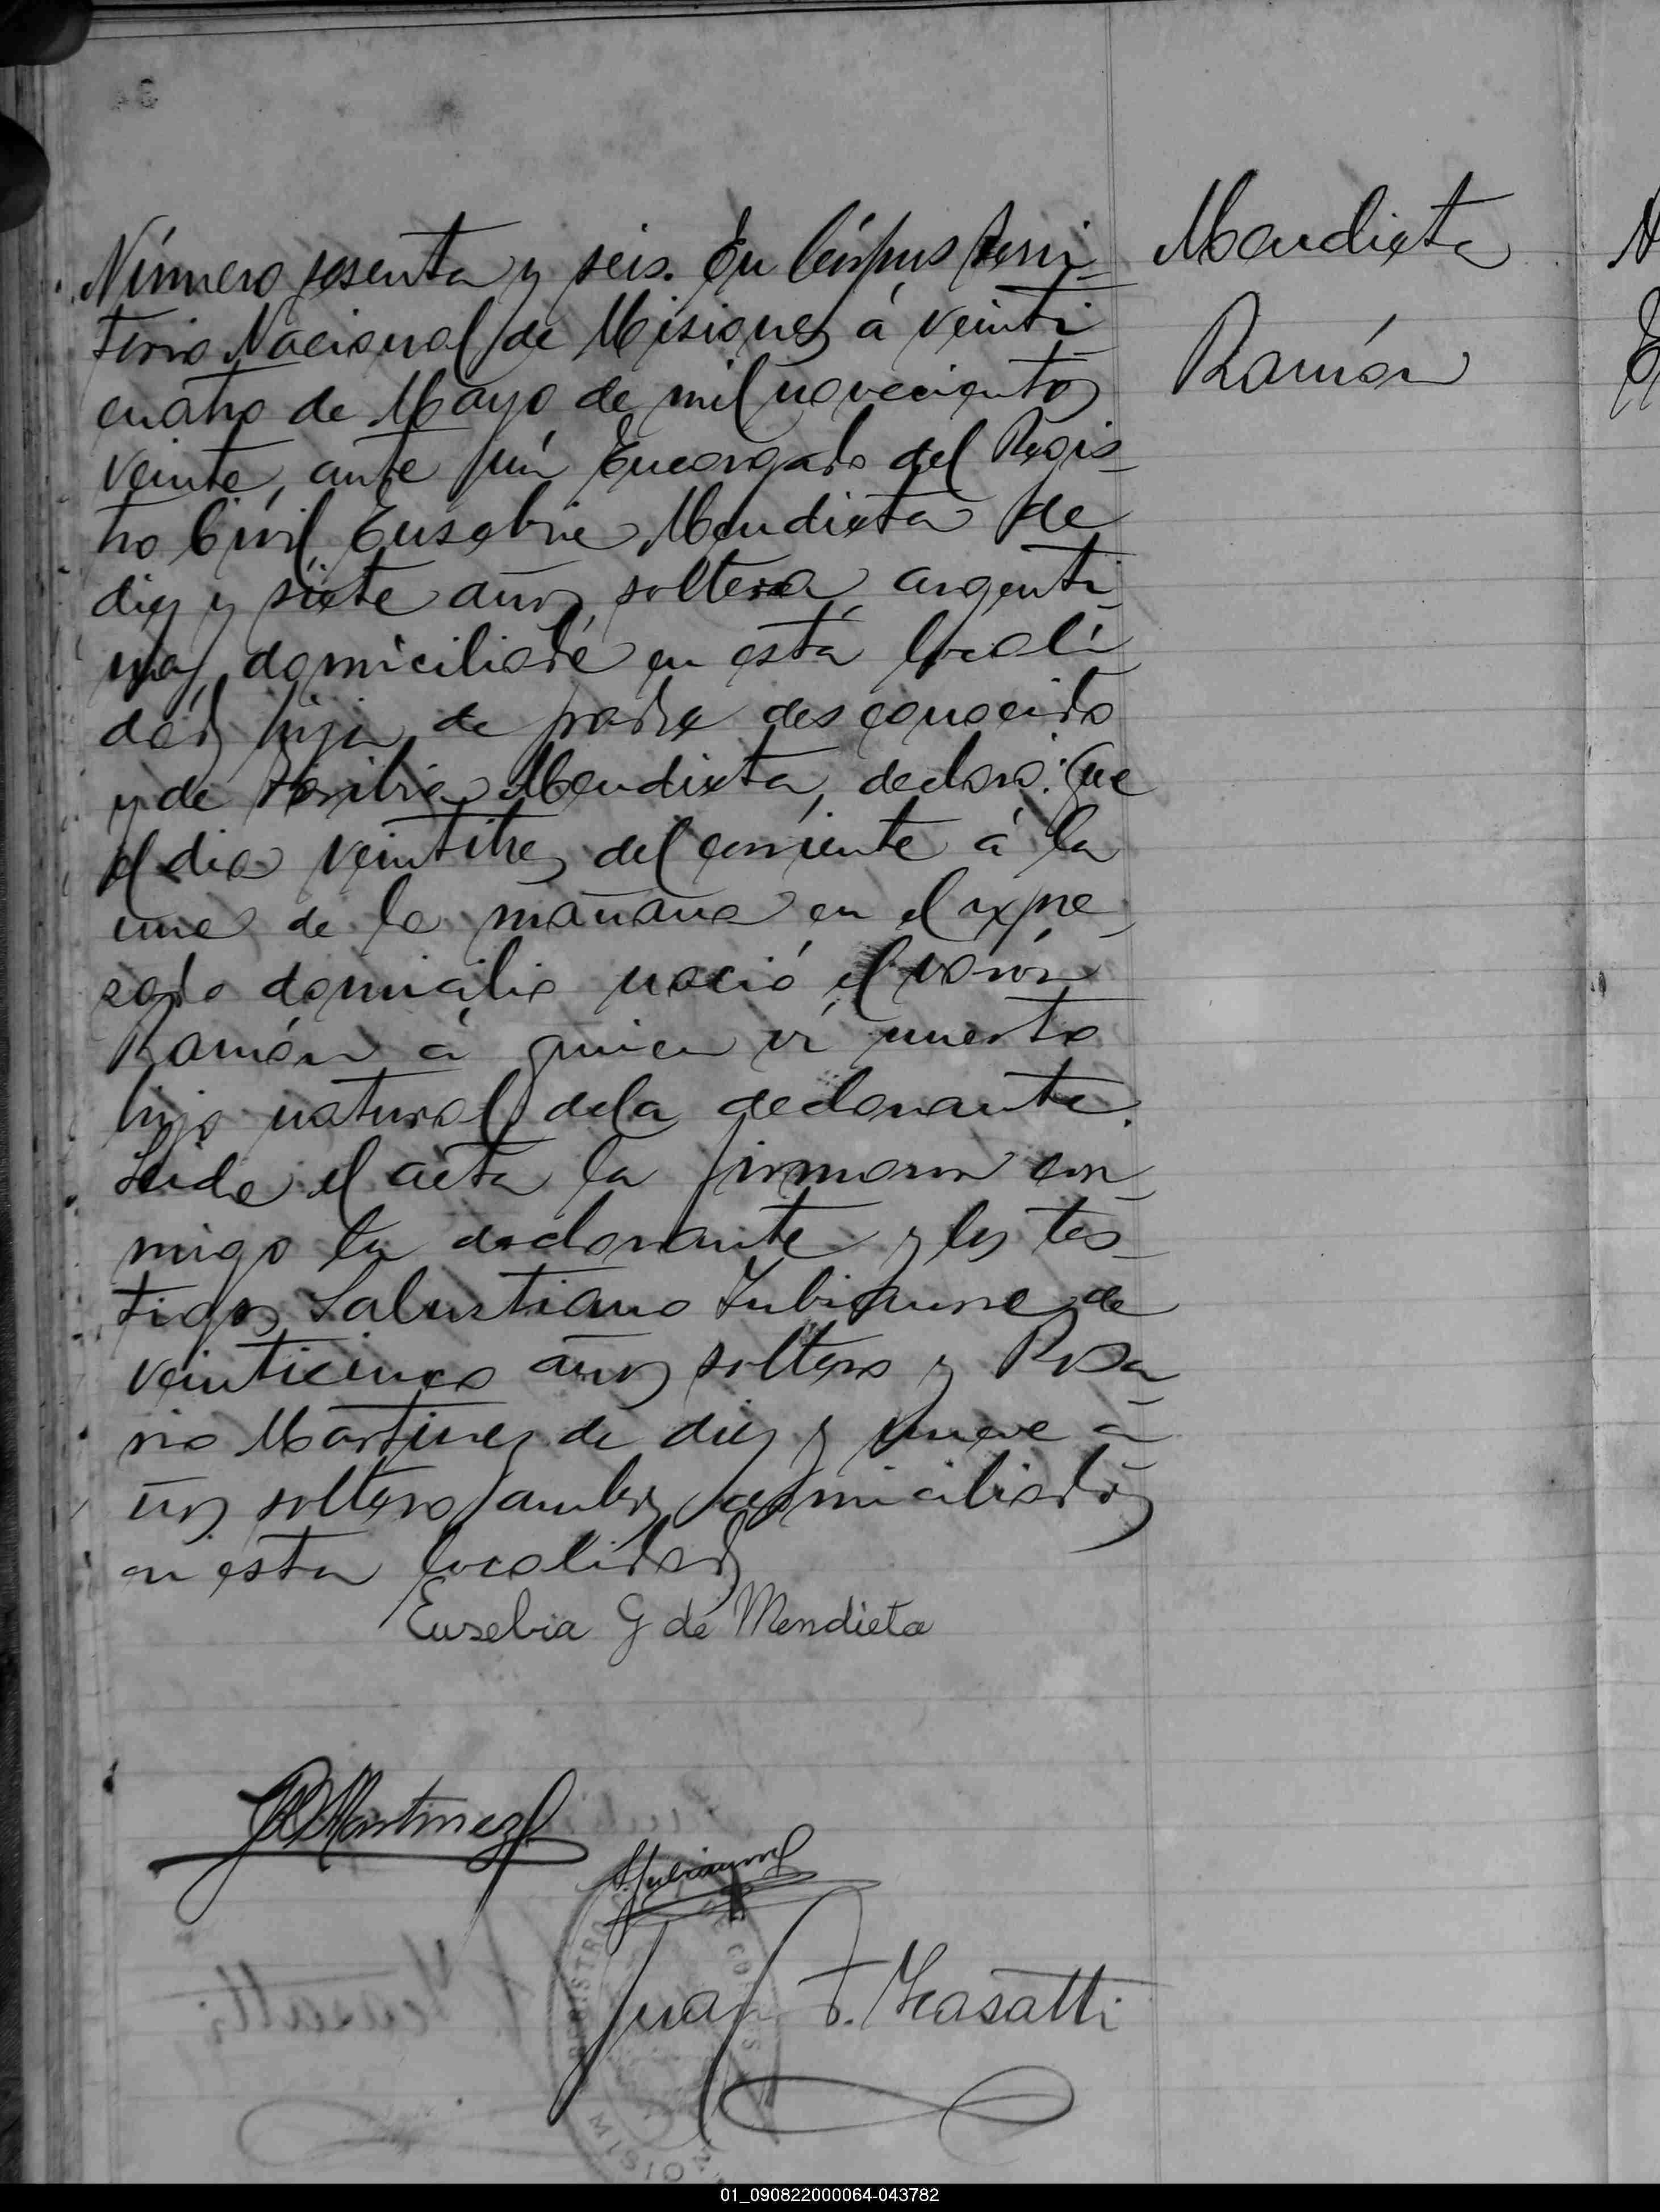 Número sesenta y seis. En Córpus Terri-
torio Nacional de Misiones á veinti
cuatro de Mayo de mil novecientos
veinte, ante mi Encargado del Regis-
tro Civil, Eusebia Mendieta de
diez y siete años, soltera, argenti-
na, domiciliada en esta locali-
dad, hija de padre desconocido
y de Mendieta, declaró: Que
el dia veintitres del corriente á la
una de la mañana en el expre-
sado domicilio nació el varón
Ramón á quien ví muerto
hijo natural de la declarante.
Leida el acta la firmaron con-
migo la declarante y los tes-
tigos Salustiano de
veinticinco años soltero y Rosa-
rio Martinez de diez y nueve a-
ños soltero, ambos domiciliados
en esta localidad
Eusebia G de Mendieta
Martinez
Juan F.
Mendieta
Ramón
REGISTRO DE CORPUS
MISIONES
01_090822000064-043782